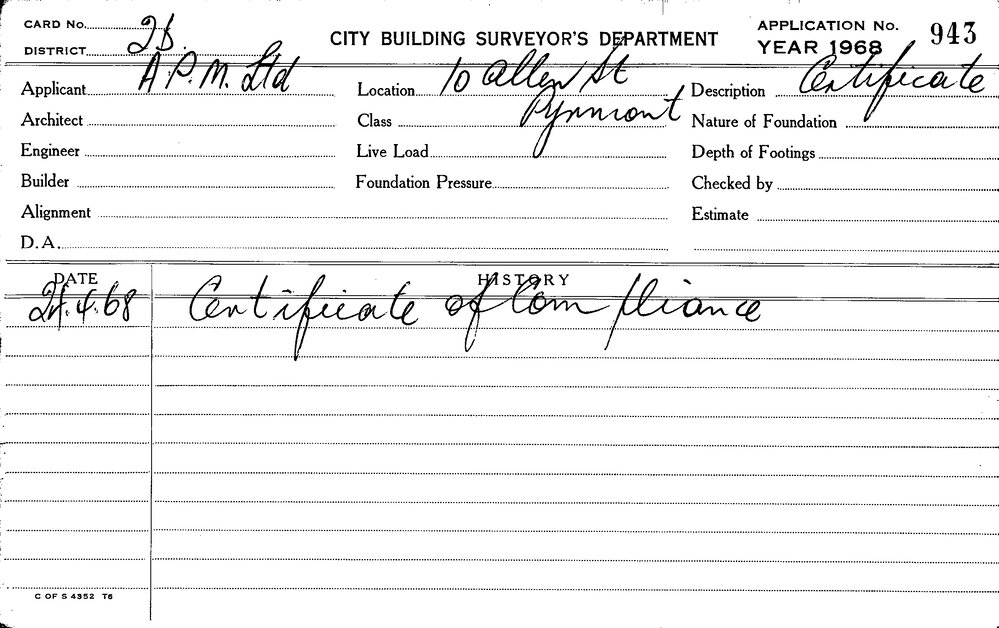 CARD No.
DISTRICT 2B.
CITY BUILDING SURVEYOR'S DEPARTMENT
APPLICATION No. 943
YEAR 1968
Applicant A.P.M. Ltd
Location 10 Allen St
Description Certificate
Architect
Class Pyrmont
Nature of Foundation
Engineer
Live Load
Depth of Footings
Builder
Foundation Pressure
Checked by
Alignment
Estimate
D.A.
DATE
HISTORY
4.68 Certificate of Compliance
C OF S 4352 T6